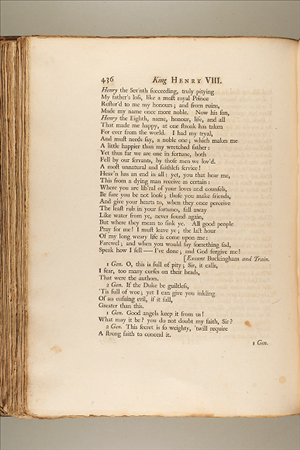 436 King HENRY VIII.
Henry the Sev'nth succeeding, truly pitying
My father's loss, like a most royal Prince
Restor'd to me my honours; and from ruins,
Made my name once more noble. Now his son,
Henry the Eighth, name, honour, life, and all
That made me happy, at one stroak has taken
For ever from the world. I had my tryal,
And must needs say, a noble one; which makes me
A little happier than my wretched father:
Yet thus far we are one in fortune, both
Fell by our servants, by those men we lov'd.
A most unnatural and faithless service!
Heav'n has an end in all: yet, you that hear me,
This from a dying man receive as certain:
Where you are lib'ral of your loves and counsels,
Be sure you be not loose; those you make friends,
And give your hearts to, when they once perceive
The least rub in your fortunes, fall away
Like water from ye, never found again,
But where they mean to sink ye. All good people
Pray for me! I must leave ye; the last hour
Of my long weary life is come upon me:
Farewel; and when you would say something sad,
Speak how I fell —— I've done; and God forgive me!
[Exeunt Buckingham and Train.
1 Gen. O, this is full of pity; Sir, it calls,
I fear, too many curses on their heads,
That were the authors.
2 Gen. If the Duke be guiltless,
'Tis full of woe; yet I can give you inkling
Of an ensuing evil, if it fall,
Greater than this.
1 Gen. Good angels keep it from us!
What may it be? you do not doubt my faith, Sir?
2 Gen. This secret is so weighty, 'twill require
A strong faith to conceal it.
1 Gen.